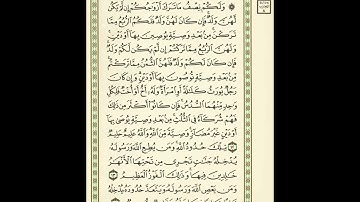 وَلَكُمْ نِصْفُ مَا تَرَكَ أَزْوَٰجُكُمْ إِن لَّمْ يَكُن
لَّهُنَّ وَلَدٌ فَإِن كَانَ لَهُنَّ وَلَدٌ فَلَكُمُ ٱلرُّبُعُ مِمَّا
تَرَكْنَ مِنۢ بَعْدِ وَصِيَّةٍ يُوصِينَ بِهَآ أَوْ دَيْنٍ
وَلَهُنَّ ٱلرُّبُعُ مِمَّا تَرَكْتُمْ إِن لَّمْ يَكُن لَّكُمْ وَلَدٌ
فَإِن كَانَ لَكُمْ وَلَدٌ فَلَهُنَّ ٱلثُّمُنُ مِمَّا تَرَكْتُم
مِّنۢ بَعْدِ وَصِيَّةٍ تُوصُونَ بِهَآ أَوْ دَيْنٍ وَإِن كَانَ
رَجُلٌ يُورَثُ كَلَٰلَةً أَوِ ٱمْرَأَةٌ وَلَهُۥٓ أَخٌ أَوْ أُخْتٌ فَلِكُلِّ
وَٰحِدٍ مِّنْهُمَا ٱلسُّدُسُ فَإِن كَانُوٓا۟ أَكْثَرَ مِن ذَٰلِكَ
فَهُمْ شُرَكَآءُ فِى ٱلثُّلُثِ مِنۢ بَعْدِ وَصِيَّةٍ يُوصَىٰ بِهَآ
أَوْ دَيْنٍ غَيْرَ مُضَآرٍّ وَصِيَّةً مِّنَ ٱللَّهِ وَٱللَّهُ عَلِيمٌ حَلِيمٌ
١٢ تِلْكَ حُدُودُ ٱللَّهِ وَمَن يُطِعِ ٱللَّهَ وَرَسُولَهُۥ
يُدْخِلْهُ جَنَّٰتٍ تَجْرِى مِن تَحْتِهَا ٱلْأَنْهَٰرُ
خَٰلِدِينَ فِيهَا وَذَٰلِكَ ٱلْفَوْزُ ٱلْعَظِيمُ ١٣
وَمَن يَعْصِ ٱللَّهَ وَرَسُولَهُۥ وَيَتَعَدَّ حُدُودَهُۥ يُدْخِلْهُ